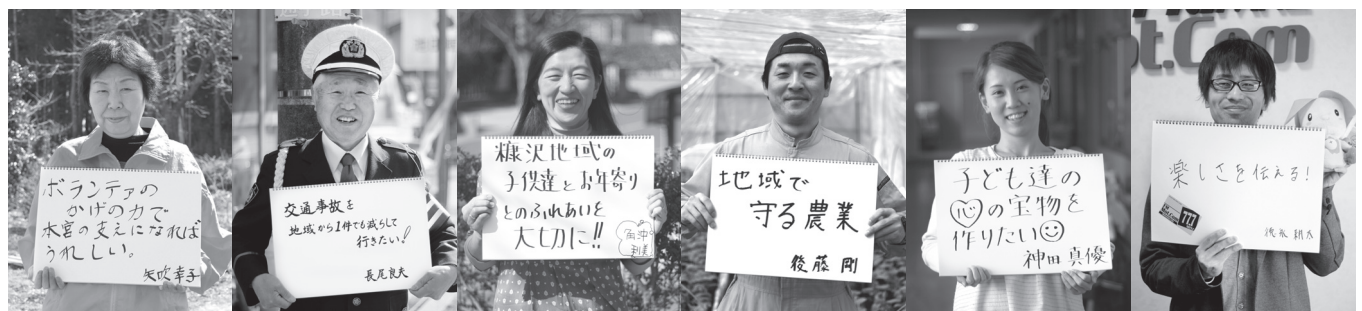 ボランティアの
かげの力で
本宮の支えになれば
うれしい。
矢吹幸子
交通事故を
地域から1件でも減らして
行きたい!
長尾良夫
糠沢地域の
子供達とお年寄り
とのふれあいを
大切に!!
地域で
守る農業
後藤 剛
子ども達の
心の宝物を
作りたい
神田 真優
ot.Com
楽しさを伝える!